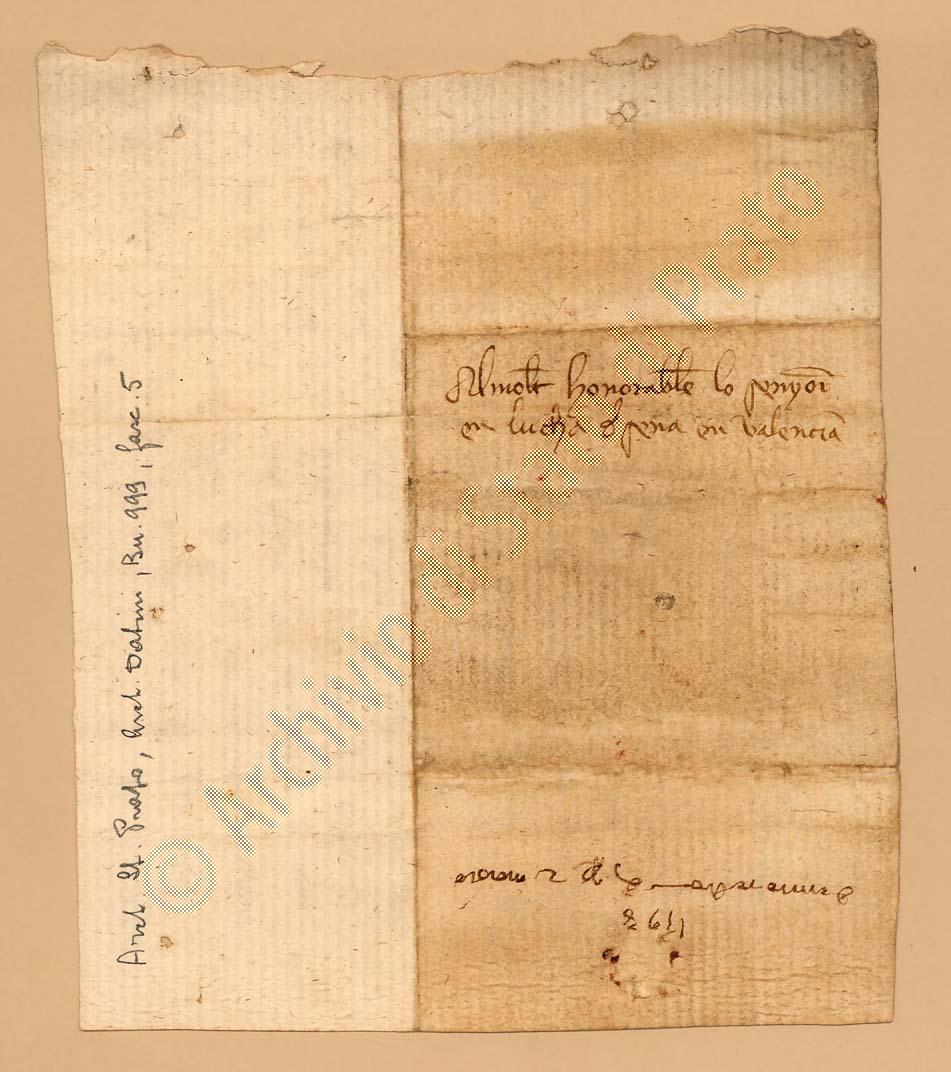 Almolt honorable lo senyor
en lucha d sena en Valencia
1398
Arch. St. Prato, Arch. Datini, Bu. 999, fasc. 5
© Archivio di Stato di Prato